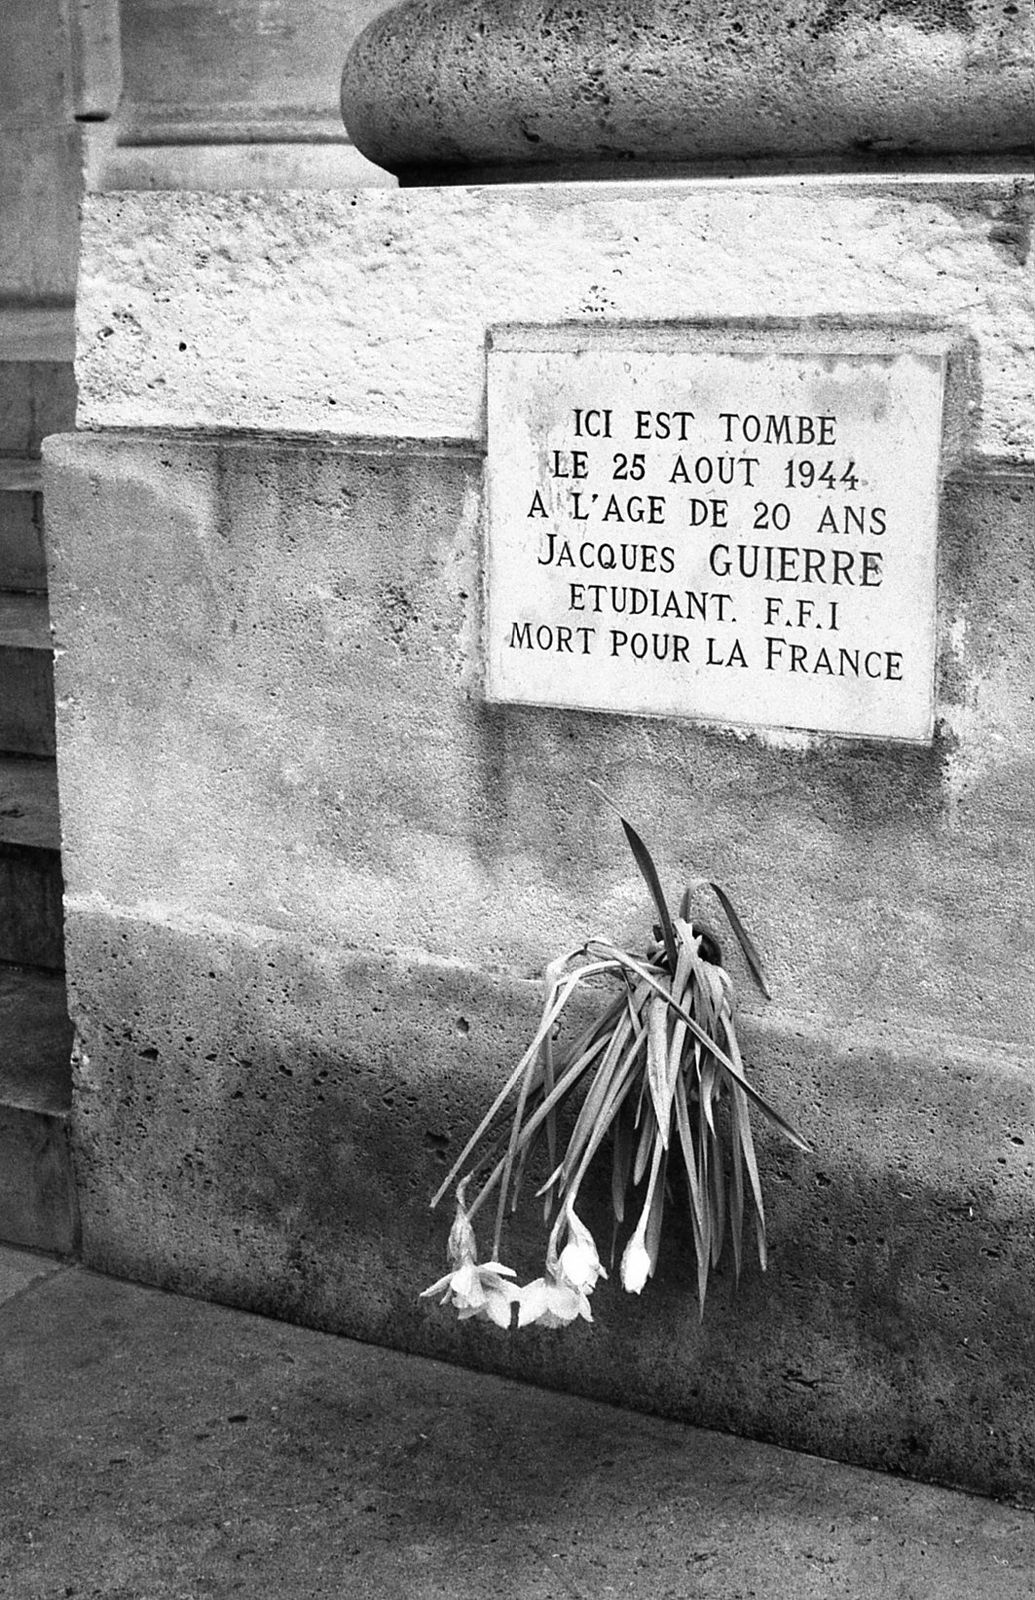 ICI EST TOMBE
LE 25 AOUT 1944
A L'AGE DE 20 ANS
JACQUES GUIERRE
ETUDIANT. F.F.I
MORT POUR LA FRANCE